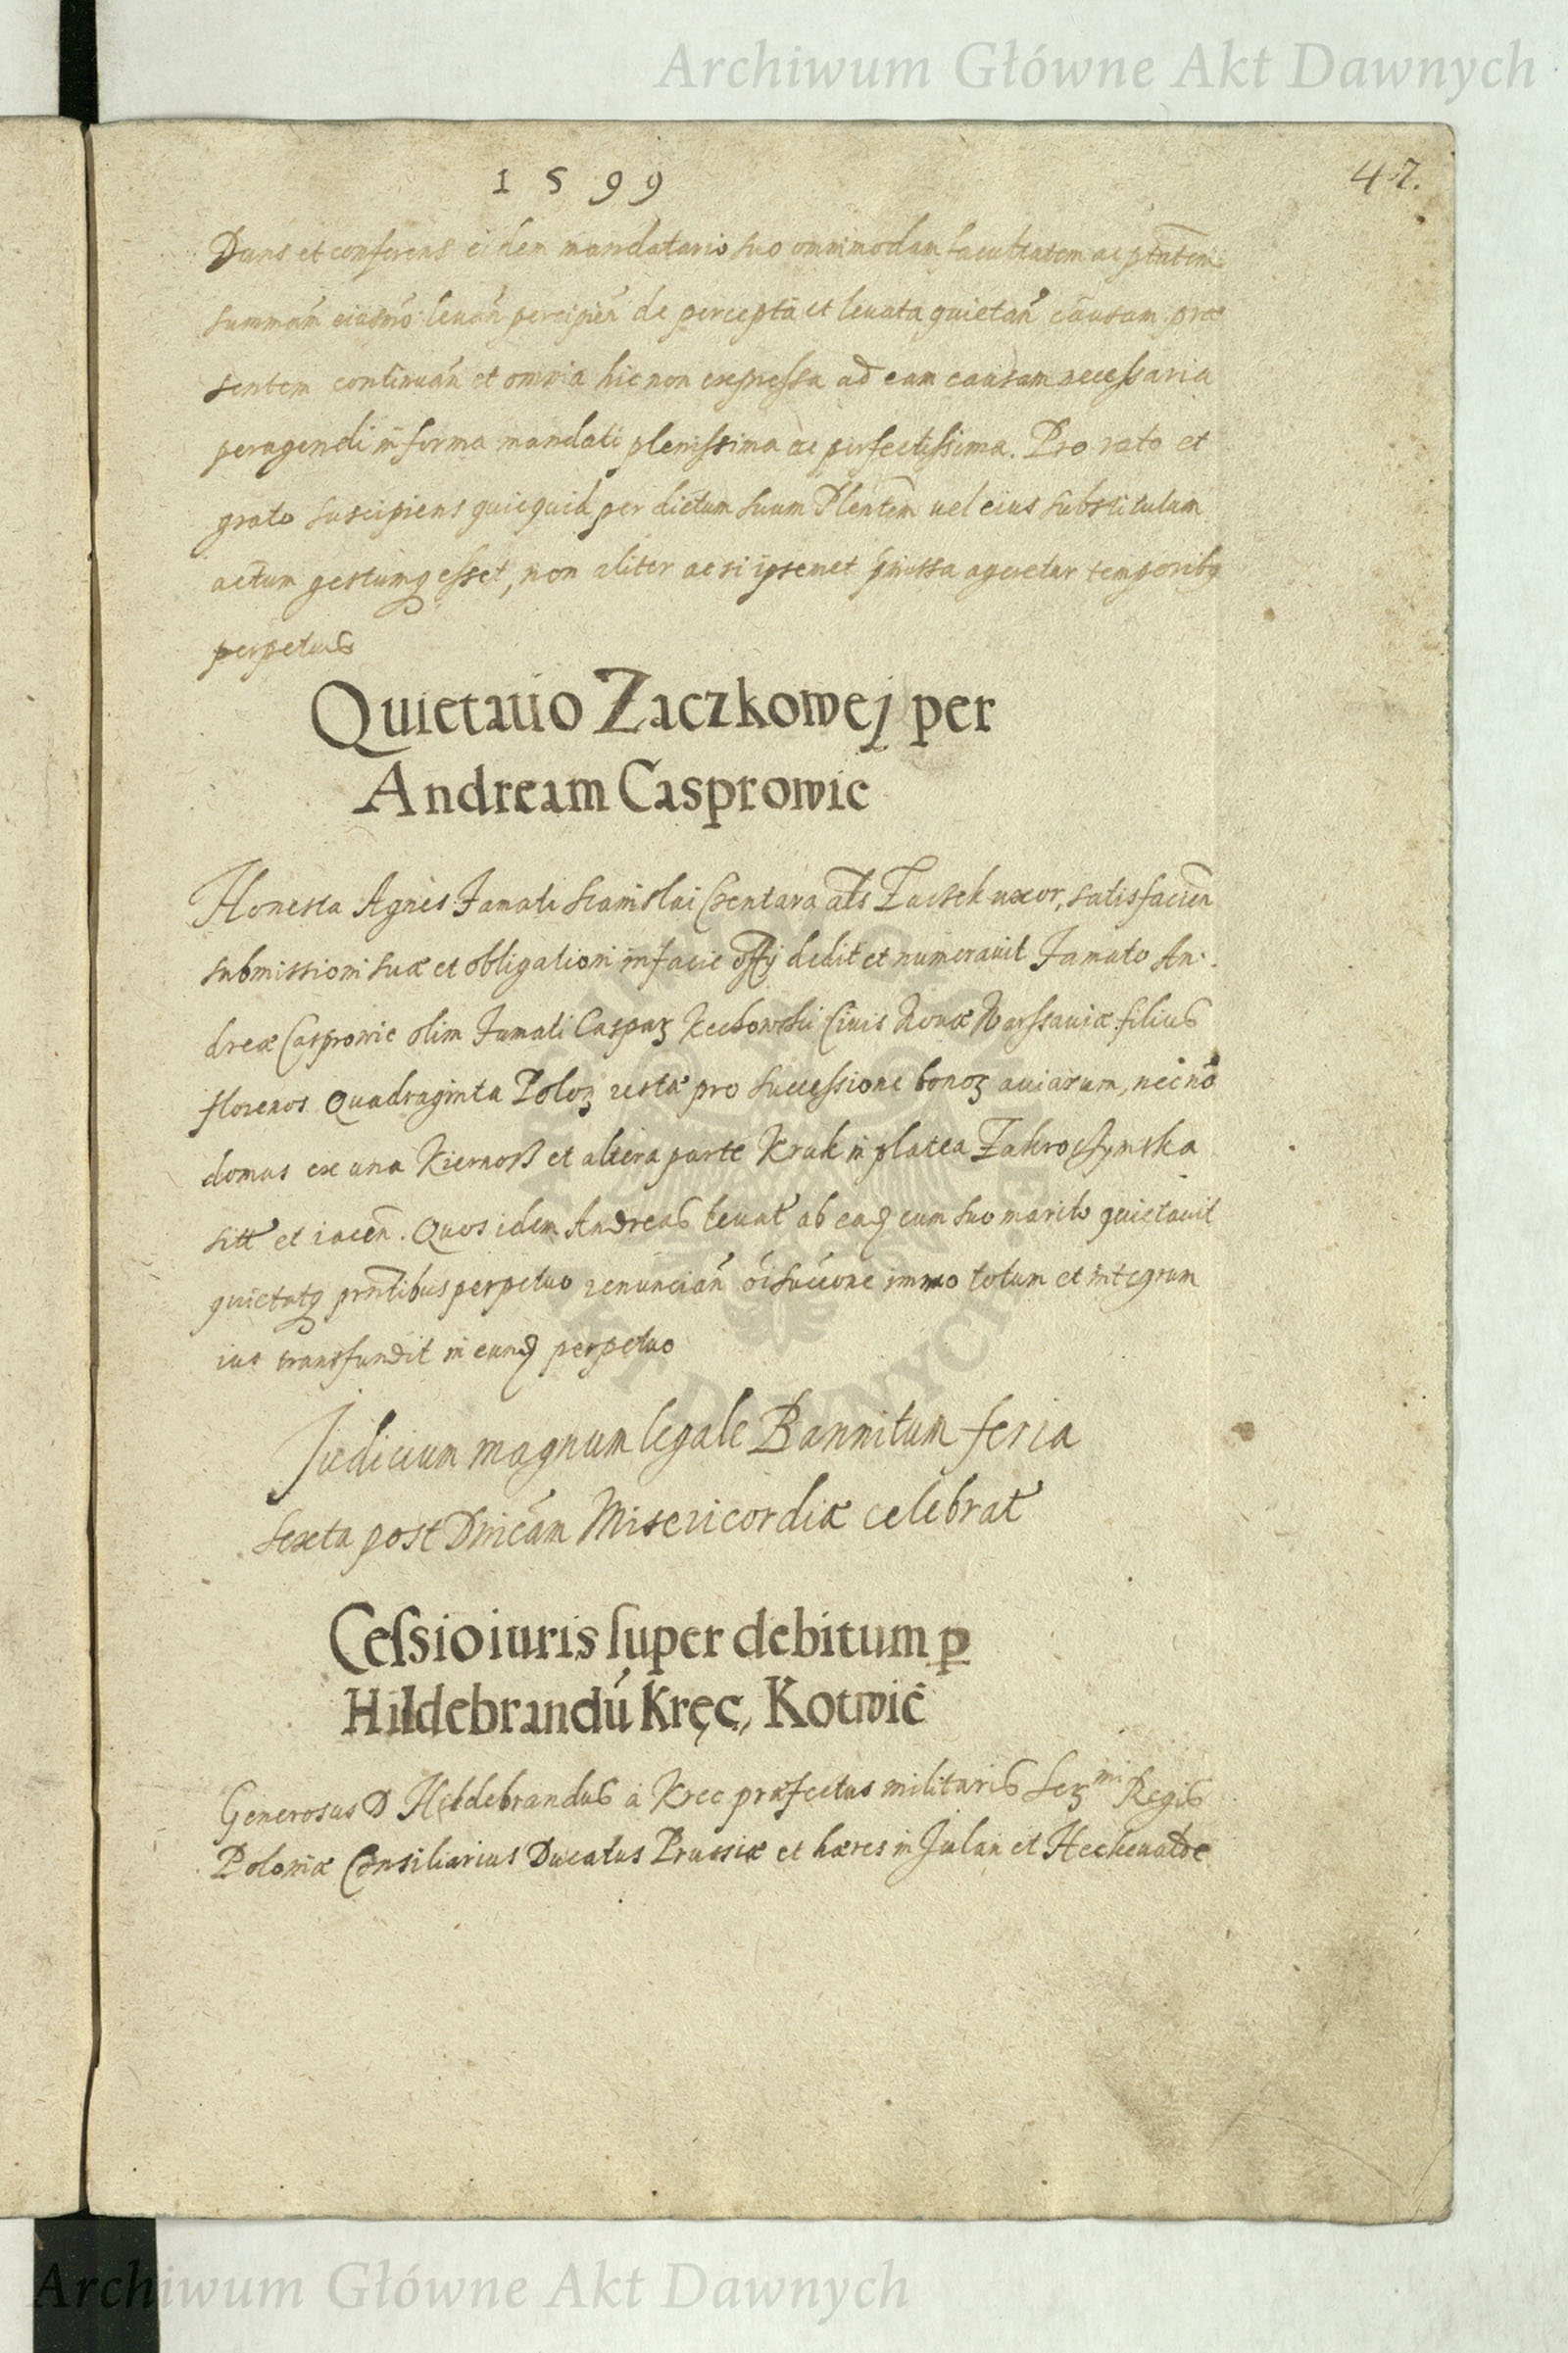 Archiwum Główne Akt Dawnych
1599
47.
Dans et conferens eidem mandatario suo omnimodam facultatem ac ptātem
summam̄ eiusmo͂i levan̄ percipien̄ de percepta et levata quietan̄ causam præ
sentem continuan̄ et omnia hic non expressa ad eam causam necessaria
peragendi in forma mandati plenissima ac perfectissima. Pro rato et
grato suscipiens quicquid per dictum suum Plentēm vel eius substitutum
actum gestumq esset, non aliter ac si ipsemet pmissa ageretur temporibq
perpetuis
Quietatio Zaczkowej per
Andream Casprowic
Honesta Agnes Famati Stanislai Czentara als Zaczek uxor, satisfacien̄
submissioni suæ et obligationi in facie offy dedit et numeravit Famato An-
dreæ Casprowic olim Famati Caspaꝝ Kechowski Civis Novæ Warssaviæ filius
florenos Quadraginta Poloꝝ restæ pro successione bonoꝝ aviarum, necno͂
domus ex una Kiernoß et altera parte Kruk in platea Zakroczymska
sitt et iacen̄. Quos idem Andreas levat ab eadꝫ cum suo marito quietavit
quietatq pn̄tibus perpetuo renuncian̄ o͂i succ͂one immo totum et integrum
ius transfundit in eundꝫ perpetuo
Judicium magnum legale Bannitum feria
sexta post Dnicam̄ Misericordiæ celebrat
Cessio iuris super debitum ꝑ
Hildebrandú Kręc, Kotwic̄
Generosus D Hildebrandus à Krec præfectus militaris Serꝫmi Regis
Poloniæ Consiliarius Ducatus Prussiæ et hæres in Julan et Heckewalde
Archiwum Główne Akt Dawnych